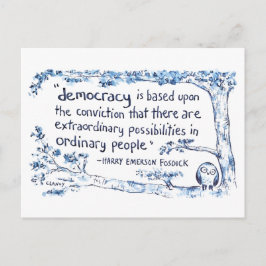 "democracy is based upon
the conviction that there are
extraordinary possibilities in
ordinary people"
~HARRY EMERSON FOSDICK